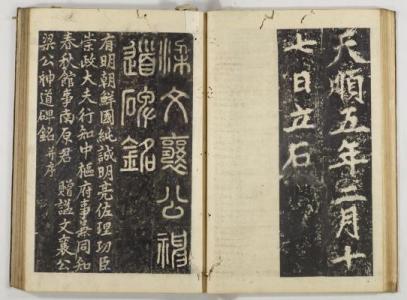 天順五年二月十
七日立石
梁文襄公神
道碑銘
有明朝鮮國純誠明亮佐理功臣
崇政大夫行知中樞府事兼同知
春秋館事南原君 贈諡文襄公
梁公神道碑銘 并序